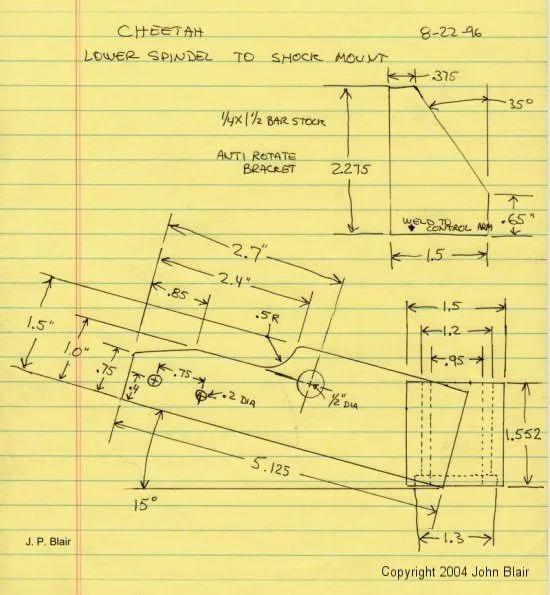 CHEETAH 8-22-96
LOWER SPINDEL TO SHOCK MOUNT
.375
35°
1/4 X 1 1/2 BAR STOCK
ANTI ROTATE
BRACKET
2.275
.65"
WELD TO
CONTROL ARM
1.5
2.7"
2.4"
.85
.5R
1.5"
1.0"
.75
.4
.75
.2 DIA
1/2" DIA
1.5
1.2
.95
1.552
5.125
15°
1.3
J. P. Blair
Copyright 2004 John Blair